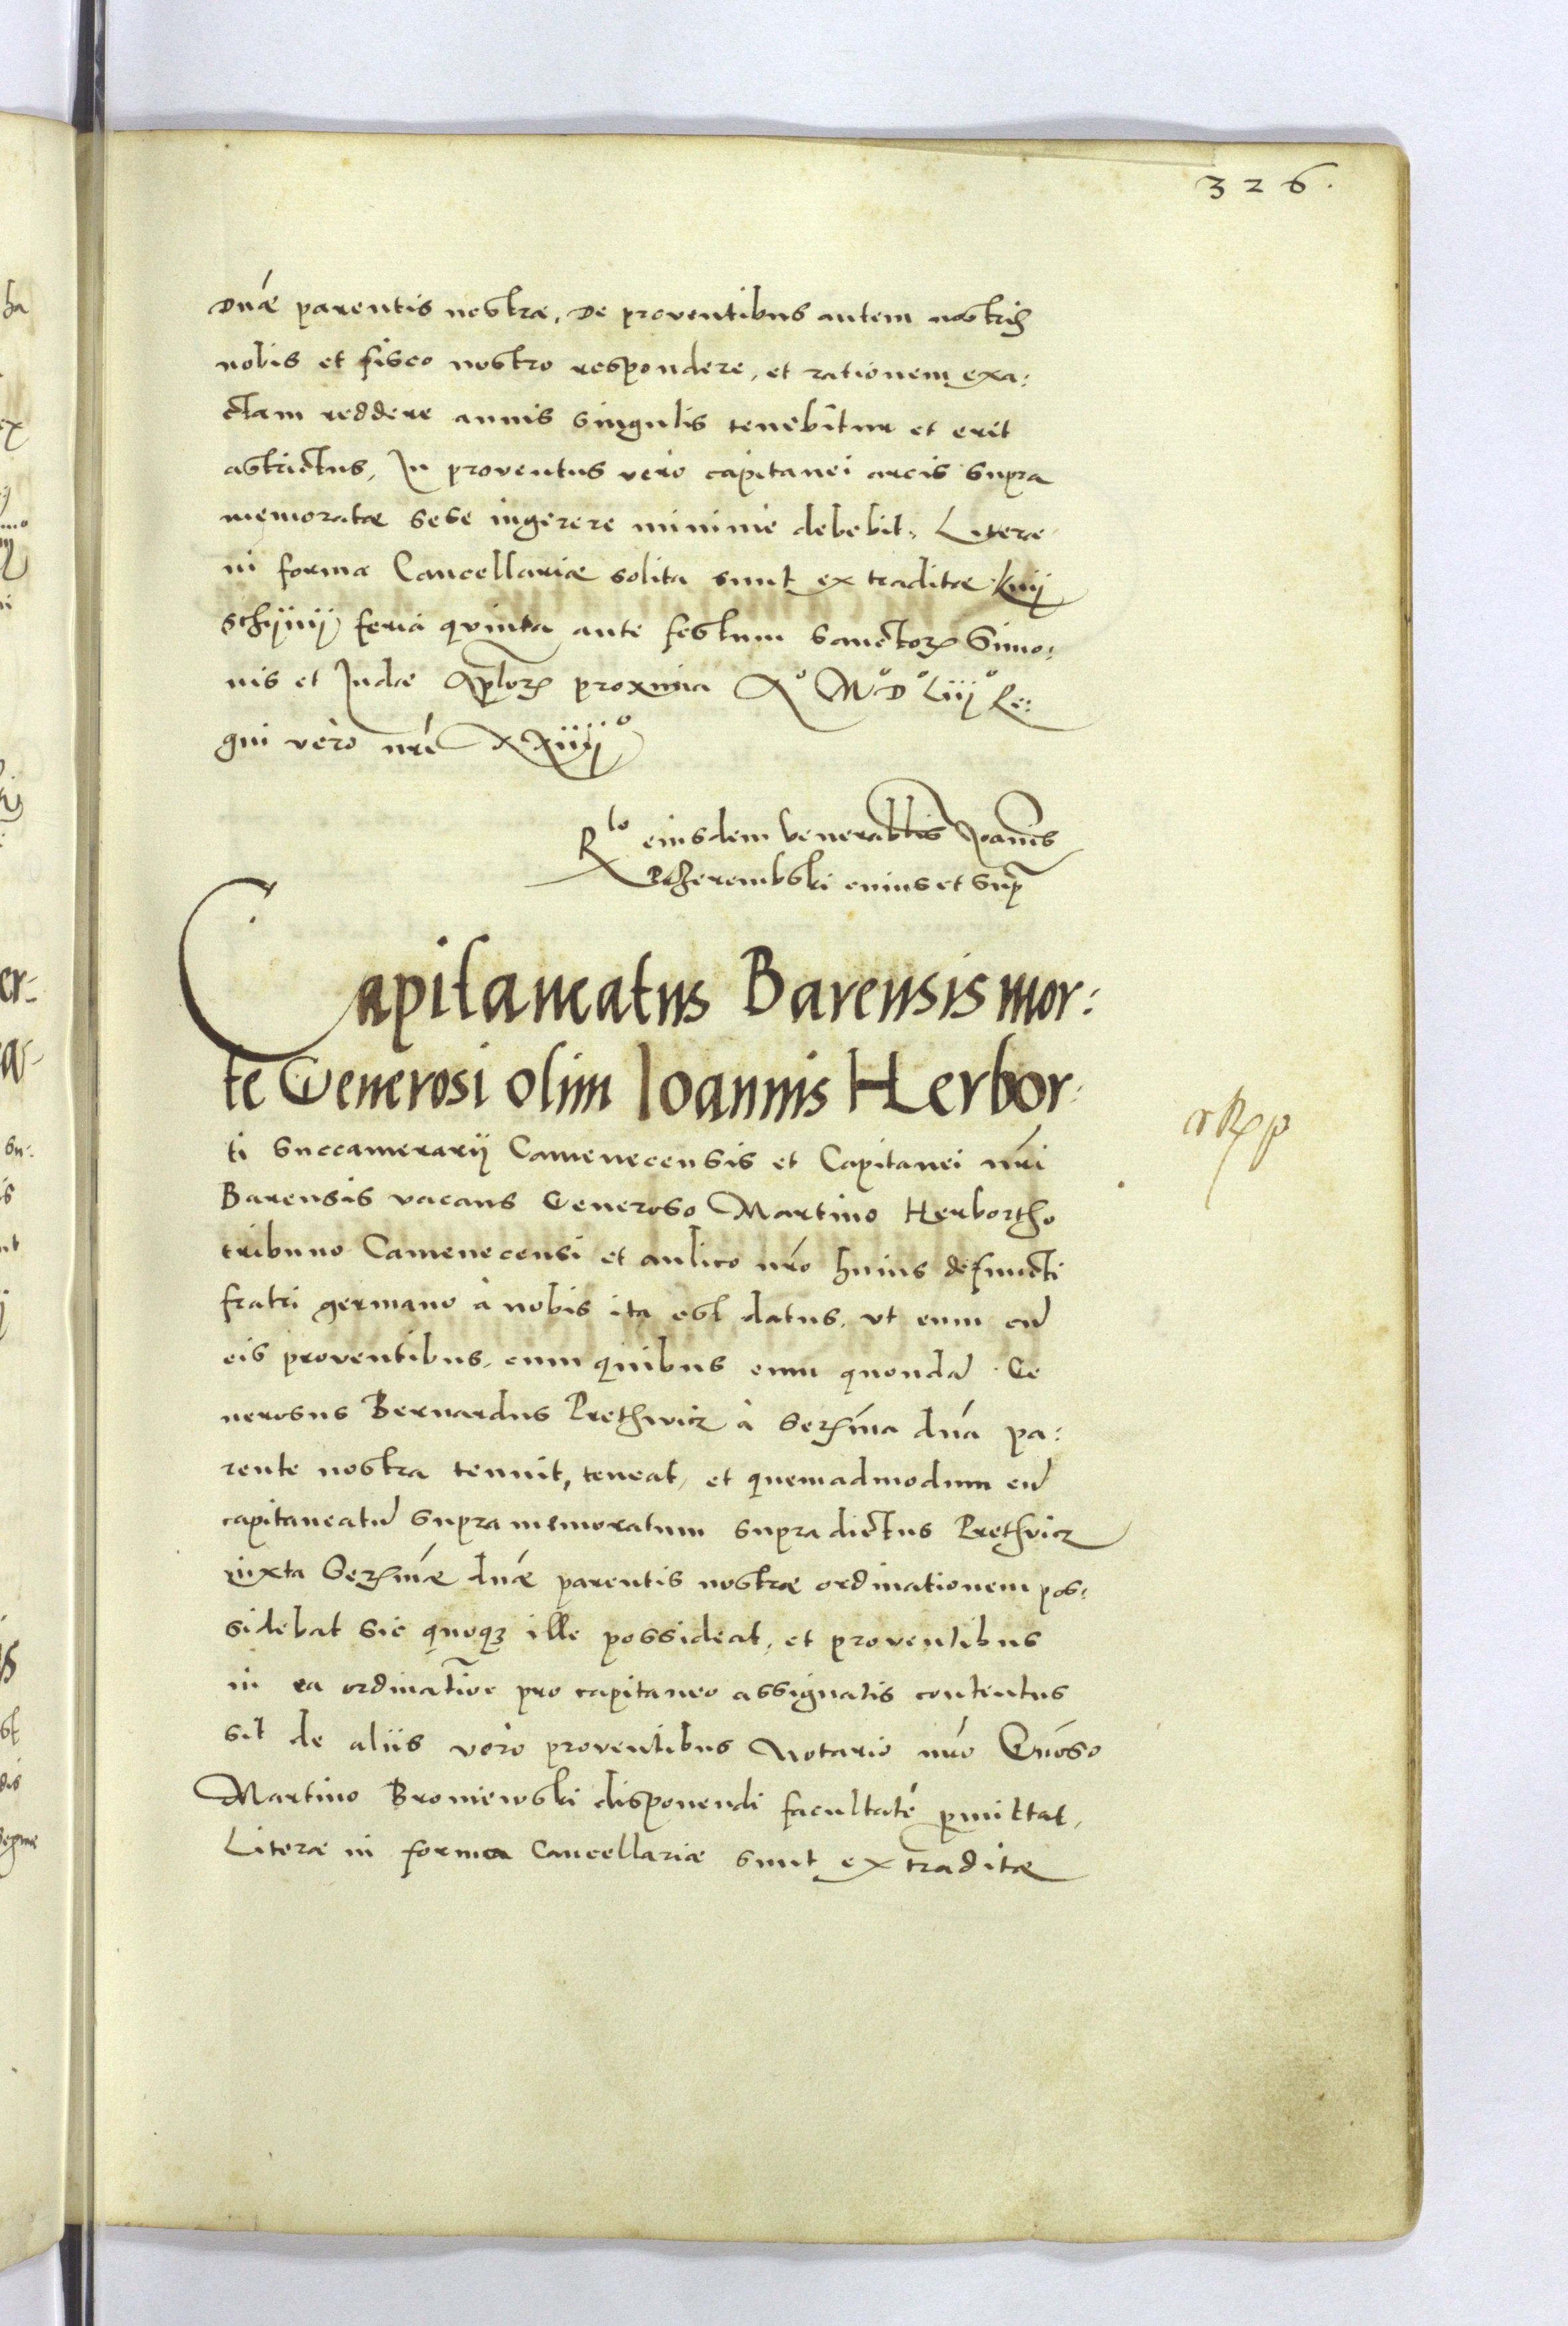 326.
Dnae parentis nostrae, De proventibus autem nostris
nobis et fisco nostro respondere, et rationem exa:
ctam reddere annis singulis tenebitur et erit
astrictus, In proventus vero capitanei arcis supra
memoratae sese ingerere minime debebit, Literae
in forma Cancellariae solita sunt ex traditae Knij
schijnij feria quinta ante festum sanctorꝝ Simo:
nis et Judae Aplorꝝ proxima Aº Mº Dº Liijº Re:
gni vero nrí XXiiijº
Rlo eiusdem venerablis Joanis
Przerembski cuius et supra
Capitaneatus Barensis mor:
te Generosi olim Ioannis Herbor:
ti Succamerarij Camenecensis et Capitanei nri
Barensis vacans Generoso Martino Herbortho
tribuno Camenecensi et aulico nro huius defuncti
fratri germano à nobis ita est datus, ut eum cũ
eis proventibus, cum quibus eum quondã Ge
nerosus Bernardus Prethwicz à Serꝝma dna pa:
rente nostra tenuit, teneat, et quemadmodum eũ
capitaneatũ supra memoratum supra dictus Prethvicz
iuxta Serꝝmae dnae parentis nostrae ordinationem pos:
sidebat sic quoqꝫ ille possideat, et proventibus
in ea ordinatioe pro capitaneo assignatis contentus
sit de aliis vero proventibus Notario nro Gnoso
Martino Broniewski disponendi facultatē pmittat,
Literae in forma Cancellariae sunt ex traditae